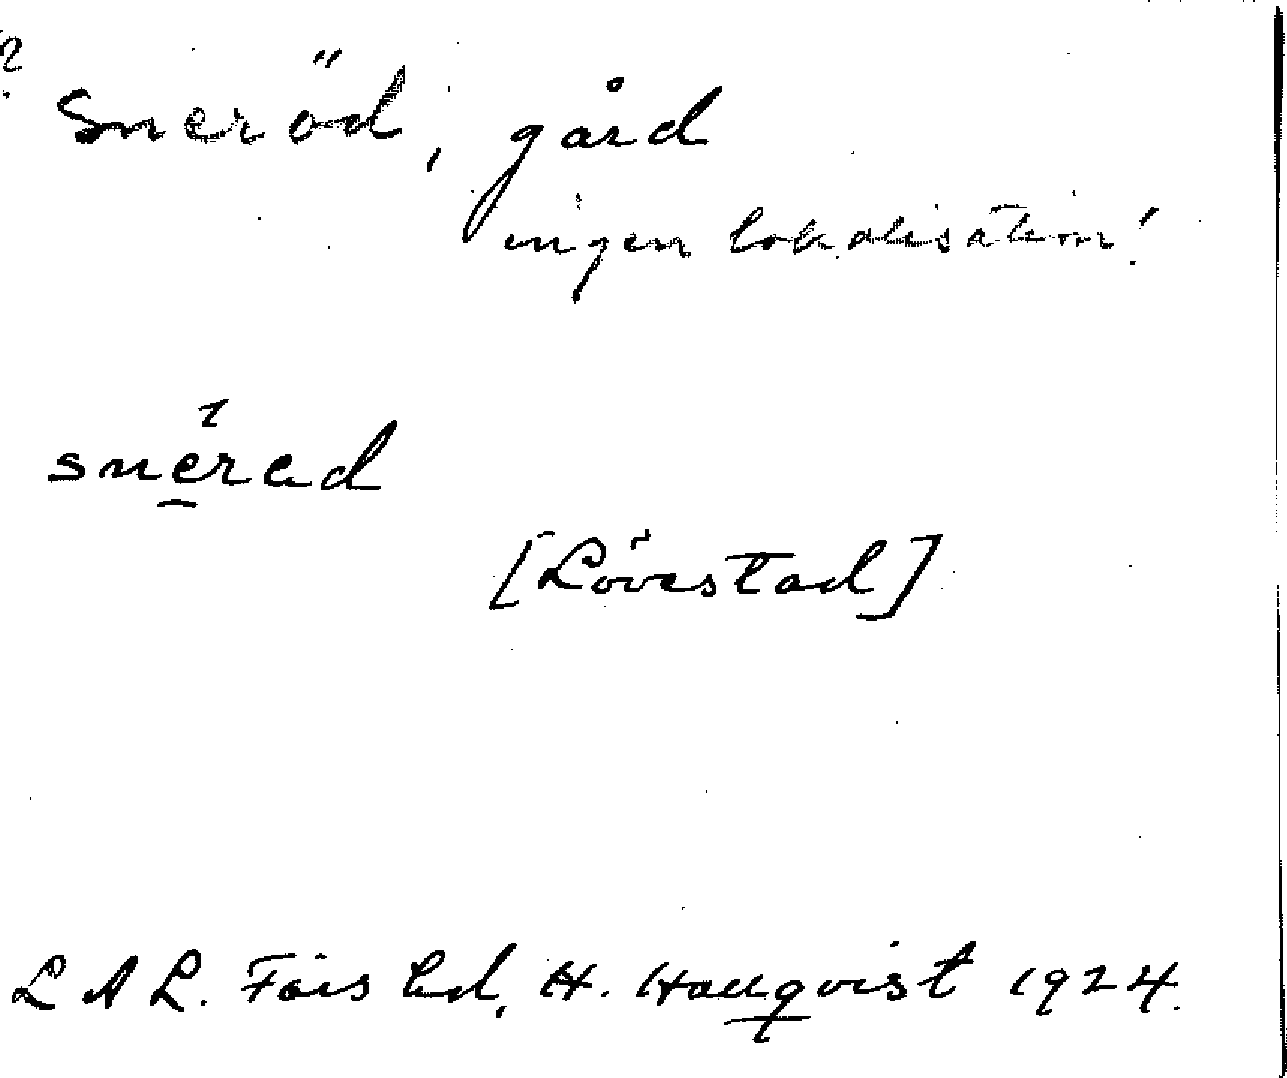 ?
Sneröd, gård
ingen lokalisation!
snérad
[Lövestad]
L A L. Färs hd, H. Hallqvist 1924.